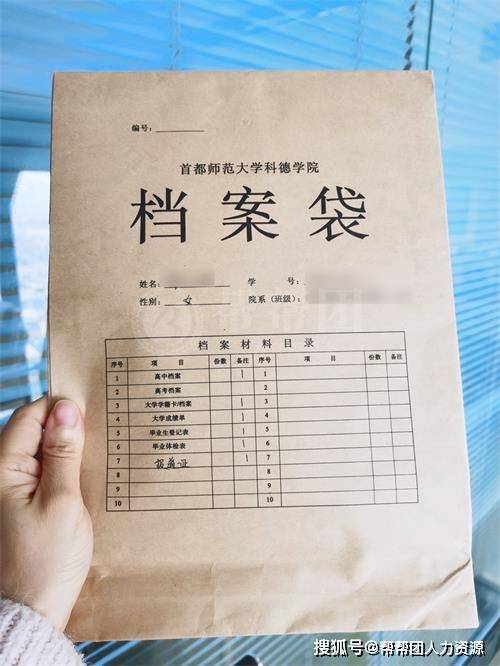 编号：
首都师范大学科德学院
档案袋
姓名： 学 号：
性别： 女 院系（班级）：
档案材料目录
序号 项 目 份数 备注 序号 项 目 份数 备注
1 高中档案 1 1
2 高考档案 2
3 大学学籍卡/档案 1 3
4 大学成绩单 1 4
5 毕业生登记表 1 5
6 毕业体检表 1 6
7 报到证 1 7
8 8
9 9
10 10
搜狐号@帮帮团人力资源